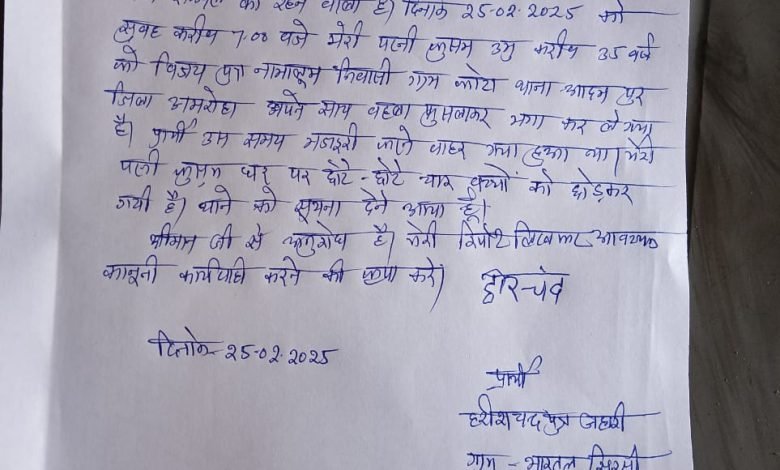 का रहने वाला है। दिनांक 25-02-2025 को
सुबह करीब 7.00 बजे मेरी पत्नी कुसुम उम्र करीब 35 वर्ष
को विजय पुत्र नामालूम निवासी ग्राम कोटा थाना आदमपुर
जिला अमरोहा अपने साथ बहला फुसलाकर भगा कर ले गया
है। प्रार्थी उस समय मजदूरी करने बाहर गया हुआ था। मेरी
पत्नी कुसुम घर पर छोटे-छोटे चार बच्चों को छोड़कर
गयी है। थाने को सूचना देने आया हूँ।
श्रीमान जी से अनुरोध है। मेरी रिपोर्ट लिखकर आवश्यक
कानूनी कार्यवाही करने की कृपा करे।
दिनांक 25-02-2025
प्रार्थी
हरीशचन्द्र पुत्र
ग्राम - भारतल सिरसी